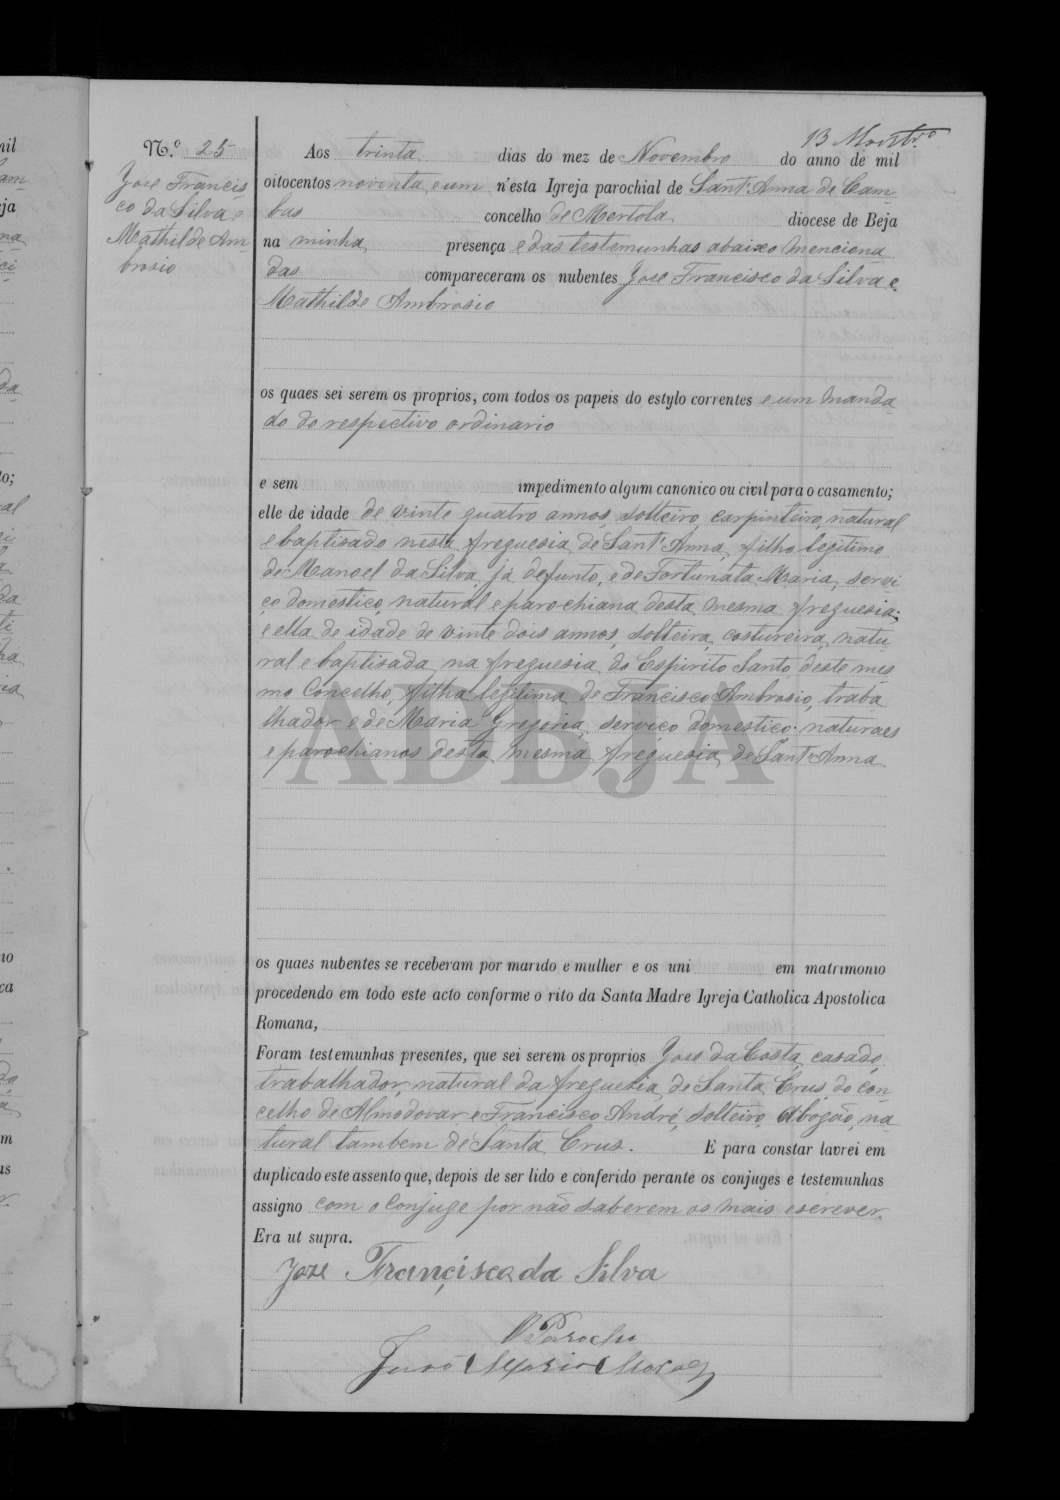 13
N.º 25
Jose Francis
co da Silva e
Mathilde Am
brosio
Aos trinta dias do mez de Novembro do anno de mil
oitocentos noventa e um n'esta Igreja parochial de Sant'Anna de Cam
bas concelho de Mertola diocese de Beja
na minha presença e das testemunhas abaixo menciona
das compareceram os nubentes Jose Francisco da Silva e
Mathilde Ambrosio
os quaes sei serem os proprios, com todos os papeis do estylo correntes e um manda
do do respectivo ordinario
e sem impedimento algum canonico ou civil para o casamento;
elle de idade de vinte quatro annos, solteiro, carpinteiro, natural
e baptisado nesta freguesia de Sant'Anna, filho legitimo
de Manoel da Silva, já defunto, e de Fortunata Maria, servi
ço domestico, natural e parochiana desta mesma freguesia;
e ella de idade de vinte dois annos, solteira, costureira, natu
ral e baptisada na freguesia do Espirito Santo deste mes
mo Concelho, filha legitima de Francisco Ambrosio, traba
lhador e de Maria Gregoria, serviço domestico; naturaes
e parochianos desta mesma freguesia de Sant'Anna
ADBJA
os quaes nubentes se receberam por marido e mulher e os uni em matrimonio
procedendo em todo este acto conforme o rito da Santa Madre Igreja Catholica Apostolica
Romana,
Foram testemunhas presentes, que sei serem os proprios Jose da Costa, casado,
trabalhador, natural da freguesia de Santa Crus do con
celho de Almodovar e Francisco André, solteiro, abogão, na
tural tambem de Santa Crus. E para constar lavrei em
duplicado este assento que, depois de ser lido e conferido perante os conjuges e testemunhas
assigno com o conjuge por não saberem os mais escrever.
Era ut supra.
Jose Francisco da Silva
O Parocho
Maria Moraes